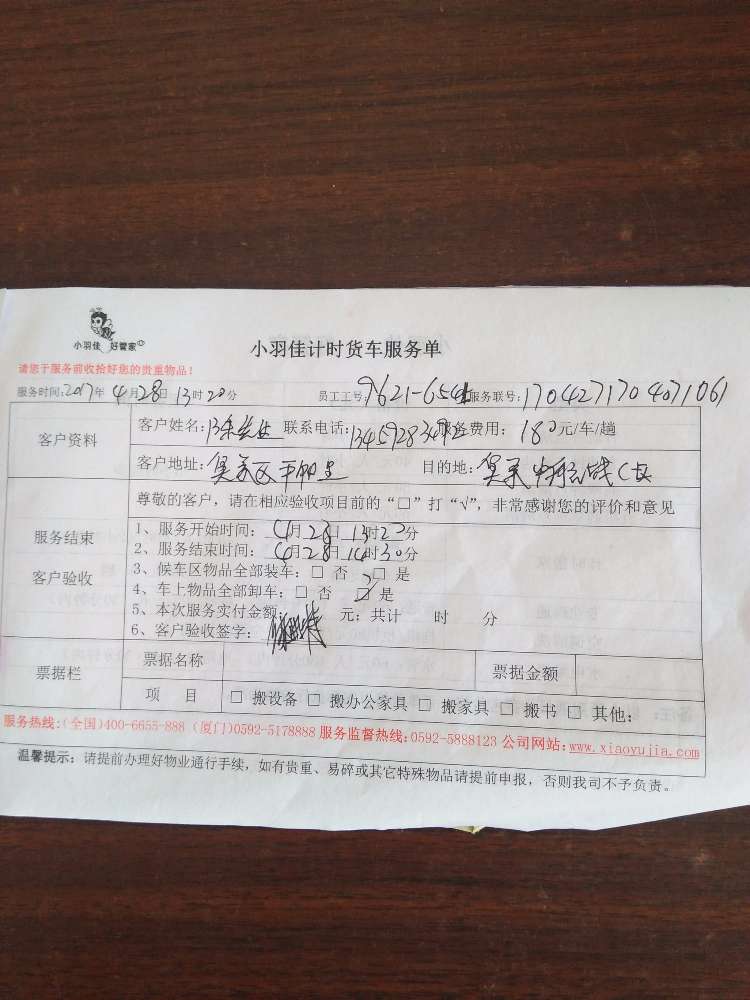 小羽佳 好管家
小羽佳计时货车服务单
请您于服务前收拾好您的贵重物品！
服务时间：2017年4月28日13时20分 员工工号：9621-654 服务联号：1704271704071061
客户资料
客户姓名： 联系电话：13459283492 服务费用：180元/车/趟
客户地址： 目的地：
尊敬的客户，请在相应验收项目前的“□”打“√”，非常感谢您的评价和意见
服务结束
客户验收
1、服务开始时间：4月28日13时20分
2、服务结束时间：4月28日14时30分
3、候车区物品全部装车：□ 否 □ 是
4、车上物品全部卸车：□ 否 ☑ 是
5、本次服务实付金额： 元；共计 时 分
6、客户验收签字：
票据栏
票据名称 票据金额
项 目 □ 搬设备 □ 搬办公家具 □ 搬家具 □ 搬书 □ 其他：
服务热线：（全国）400-6655-888（厦门）0592-5178888 服务监督热线：0592-5888123 公司网站：www.xiaoyujia.com
温馨提示：请提前办理好物业通行手续，如有贵重、易碎或其它特殊物品请提前申报，否则我司不予负责。